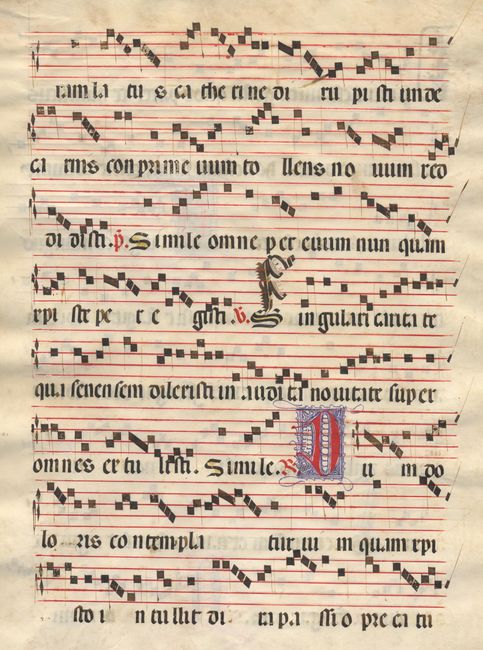 ram la tu s ca the rine di ru pi sti un de
ca rnis con prime uum to llens no uum red
di disti. p. Simile omne per euum nun quam
rpi ste pe e e gisti. v. Singulari carita te
qua senen sem dilexisti in audi ta nouitate super
omnes ex tu listi. Simile. R Dum indo
lo ris contempla tur uin quam xpi
sto i n tullit di ra pa ssi o pre ca tu